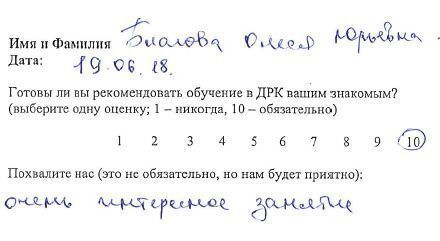 Имя и Фамилия Благова Олеся Юрьевна.
Дата: 19.06.18.
Готовы ли вы рекомендовать обучение в ДРК вашим знакомым?
(выберите одну оценку; 1 – никогда, 10 – обязательно)
1 2 3 4 5 6 7 8 9 10
Похвалите нас (это не обязательно, но нам будет приятно):
очень интересное занятие